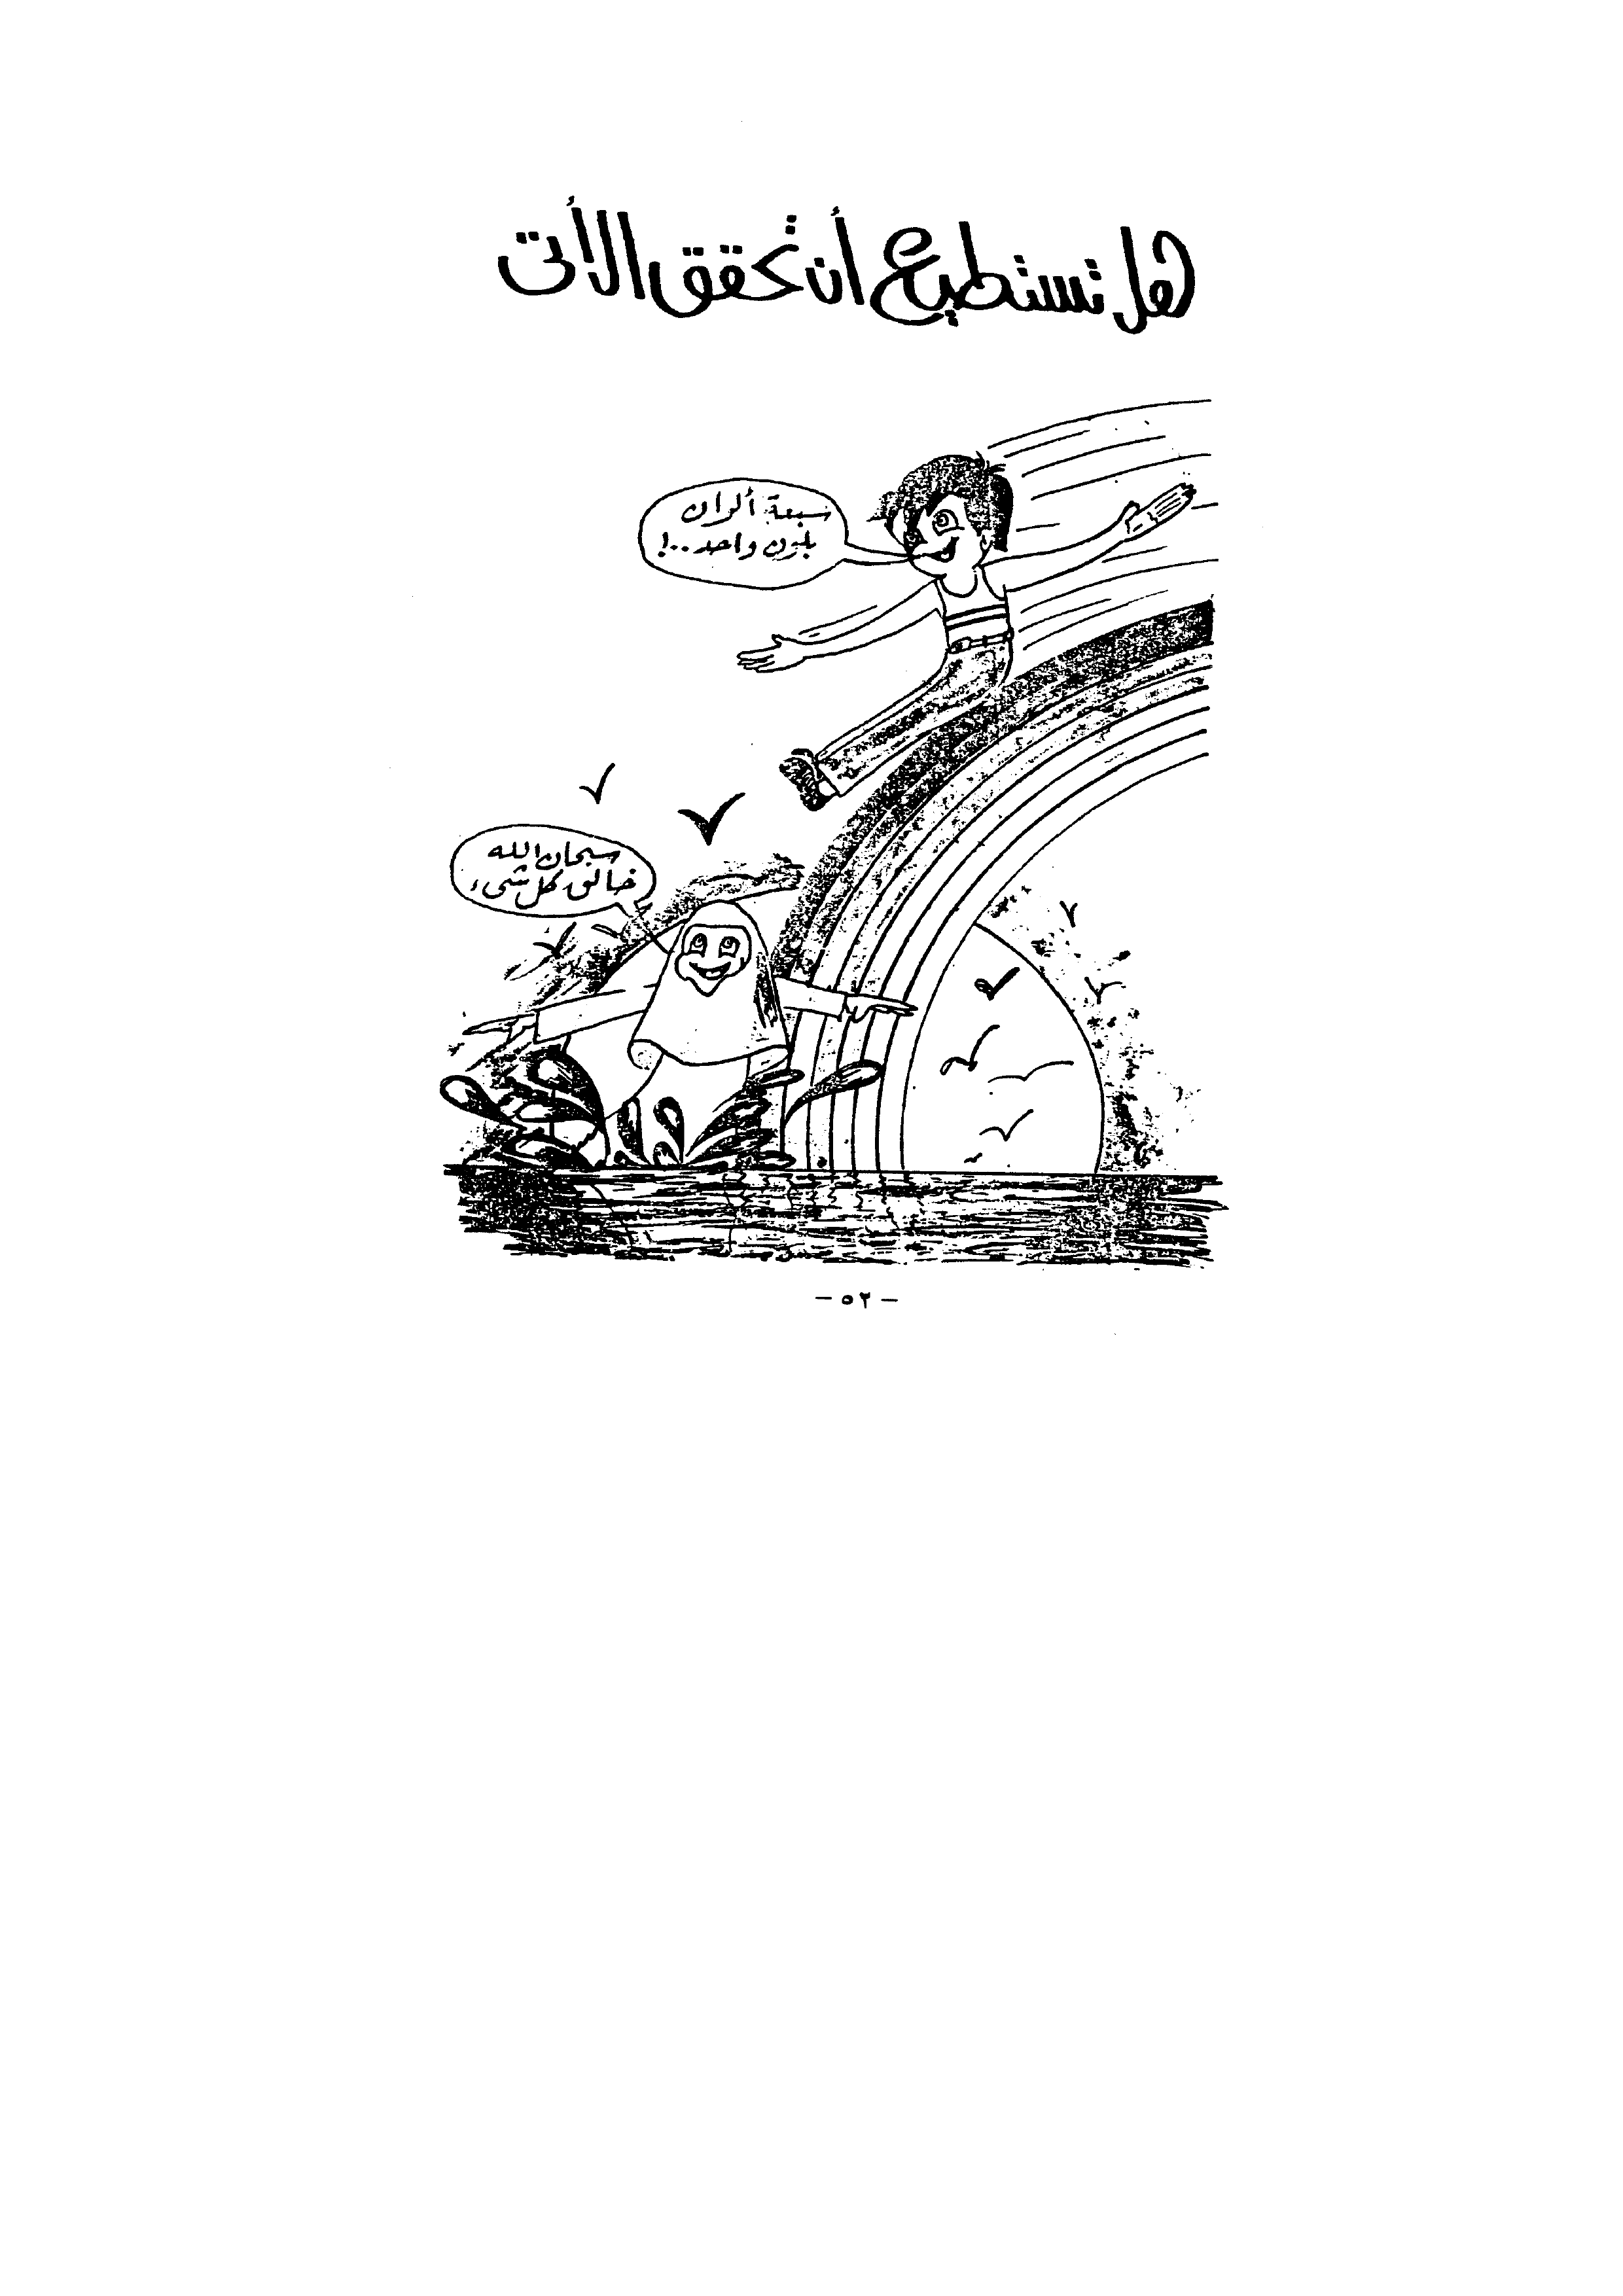 هل تستطيع أن تحقق الأتى
سبعة ألوان
بلون واحد..!
سبحان الله
خالق كل شىء
- ٥٢ -